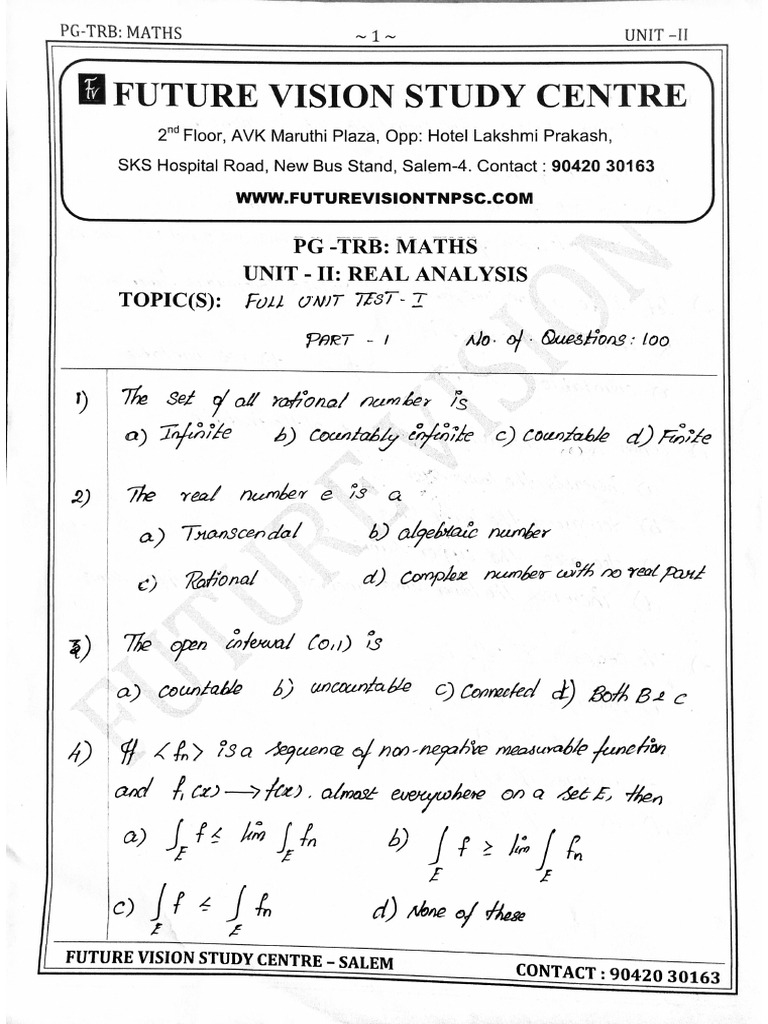 PG-TRB: MATHS ~ 1 ~ UNIT –II
FUTURE VISION STUDY CENTRE
2nd Floor, AVK Maruthi Plaza, Opp: Hotel Lakshmi Prakash,
SKS Hospital Road, New Bus Stand, Salem-4. Contact : 90420 30163
WWW.FUTUREVISIONTNPSC.COM
PG -TRB: MATHS
UNIT - II: REAL ANALYSIS
TOPIC(S): FULL UNIT TEST - I
PART - I No. of. Questions: 100
1) The set of all rational number is
a) Infinite b) Countably infinite c) Countable d) Finite
2) The real number e is a
a) Transcendal b) algebraic number
c) Rational d) complex number with no real part
3) The open interval (0,1) is
a) countable b) uncountable c) Connected d) Both B & C
4) If <fn> is a sequence of non-negative measurable function
and f,(x) → f(x). almost everywhere on a set E, then
a) ∫E f ≤ lim ∫E fn b) ∫E f ≥ lim ∫E fn
c) ∫E f ≤ ∫E fn d) None of these
FUTURE VISION STUDY CENTRE – SALEM CONTACT : 90420 30163
FUTURE VISION